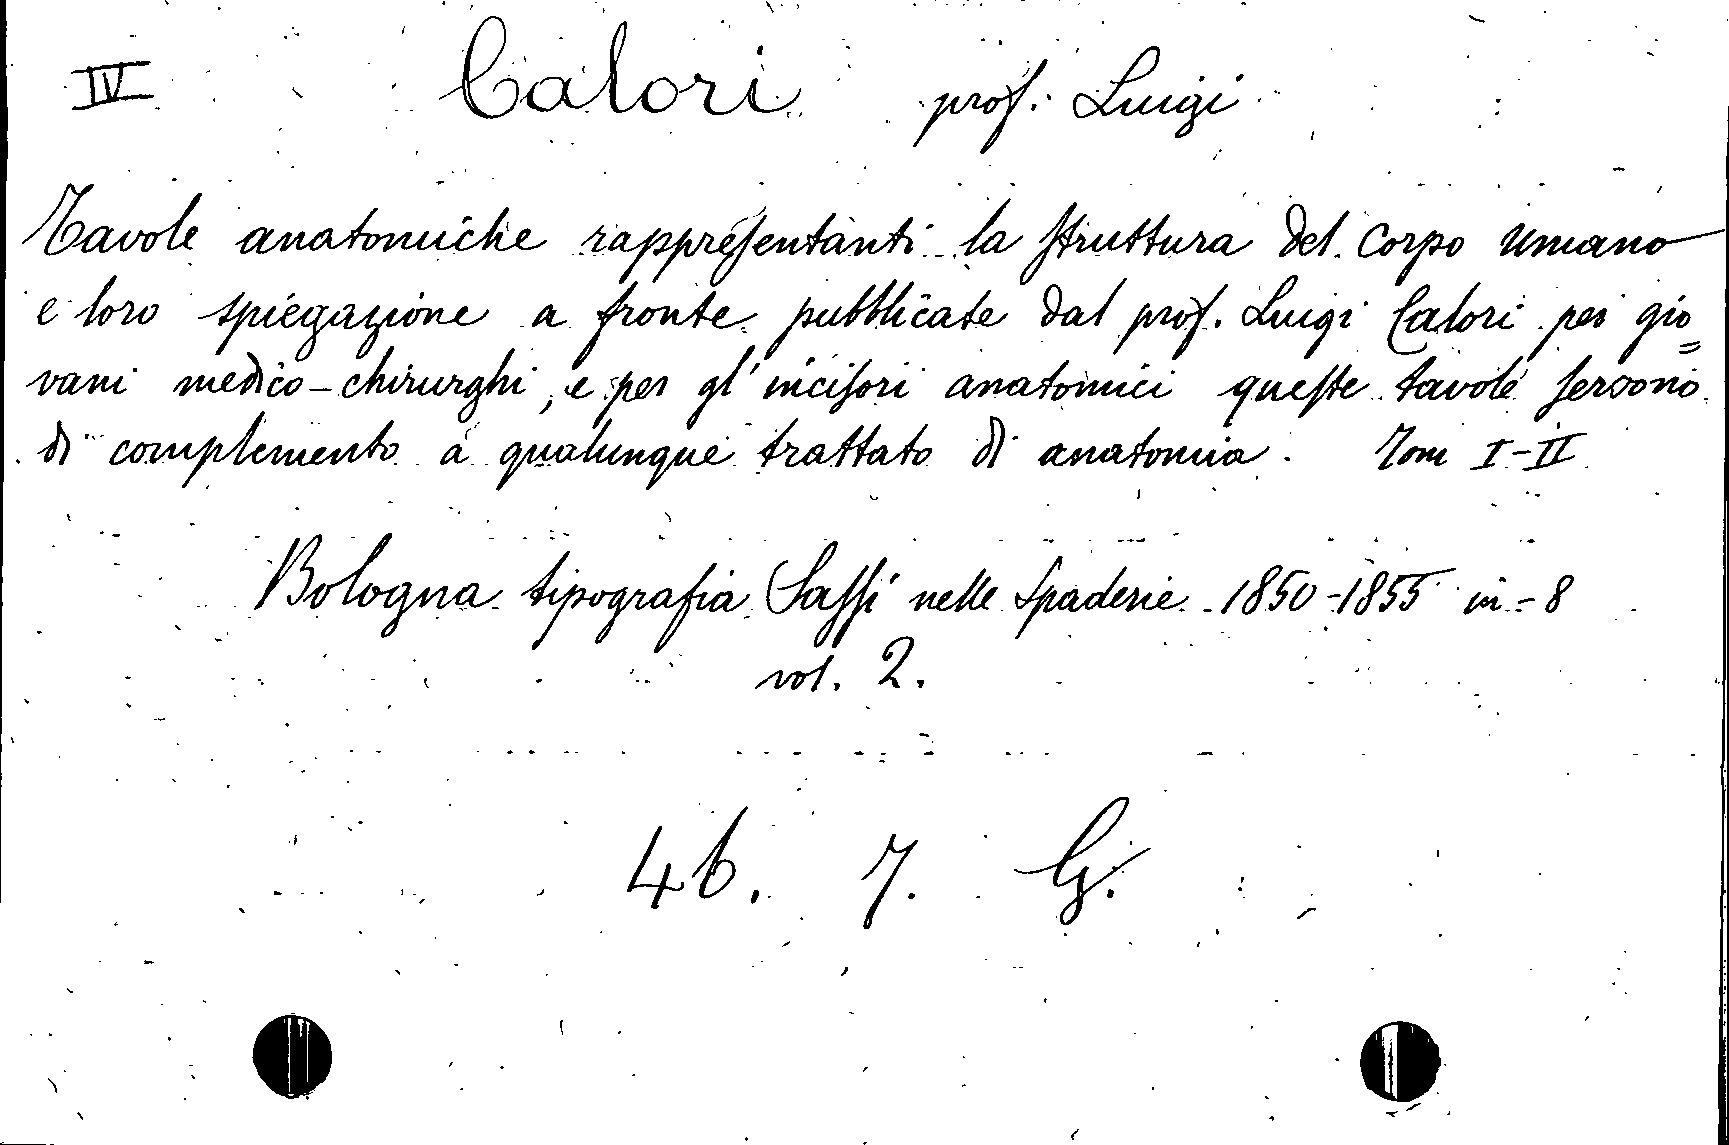 IV Calori prof. Luigi
Tavole anatomiche rappresentanti la struttura del corpo umano
e loro spiegazione a fronte pubblicate dal prof. Luigi Calori pei gio=
vani medico-chirurghi, e per gl'incisori anatomici queste tavole servono
di complemento a qualunque trattato di anatomia. Tomi I-II
Bologna tipografia Sassi nelle Spaderie 1850-1855 in-8
vol. 2.
46. 7. G.